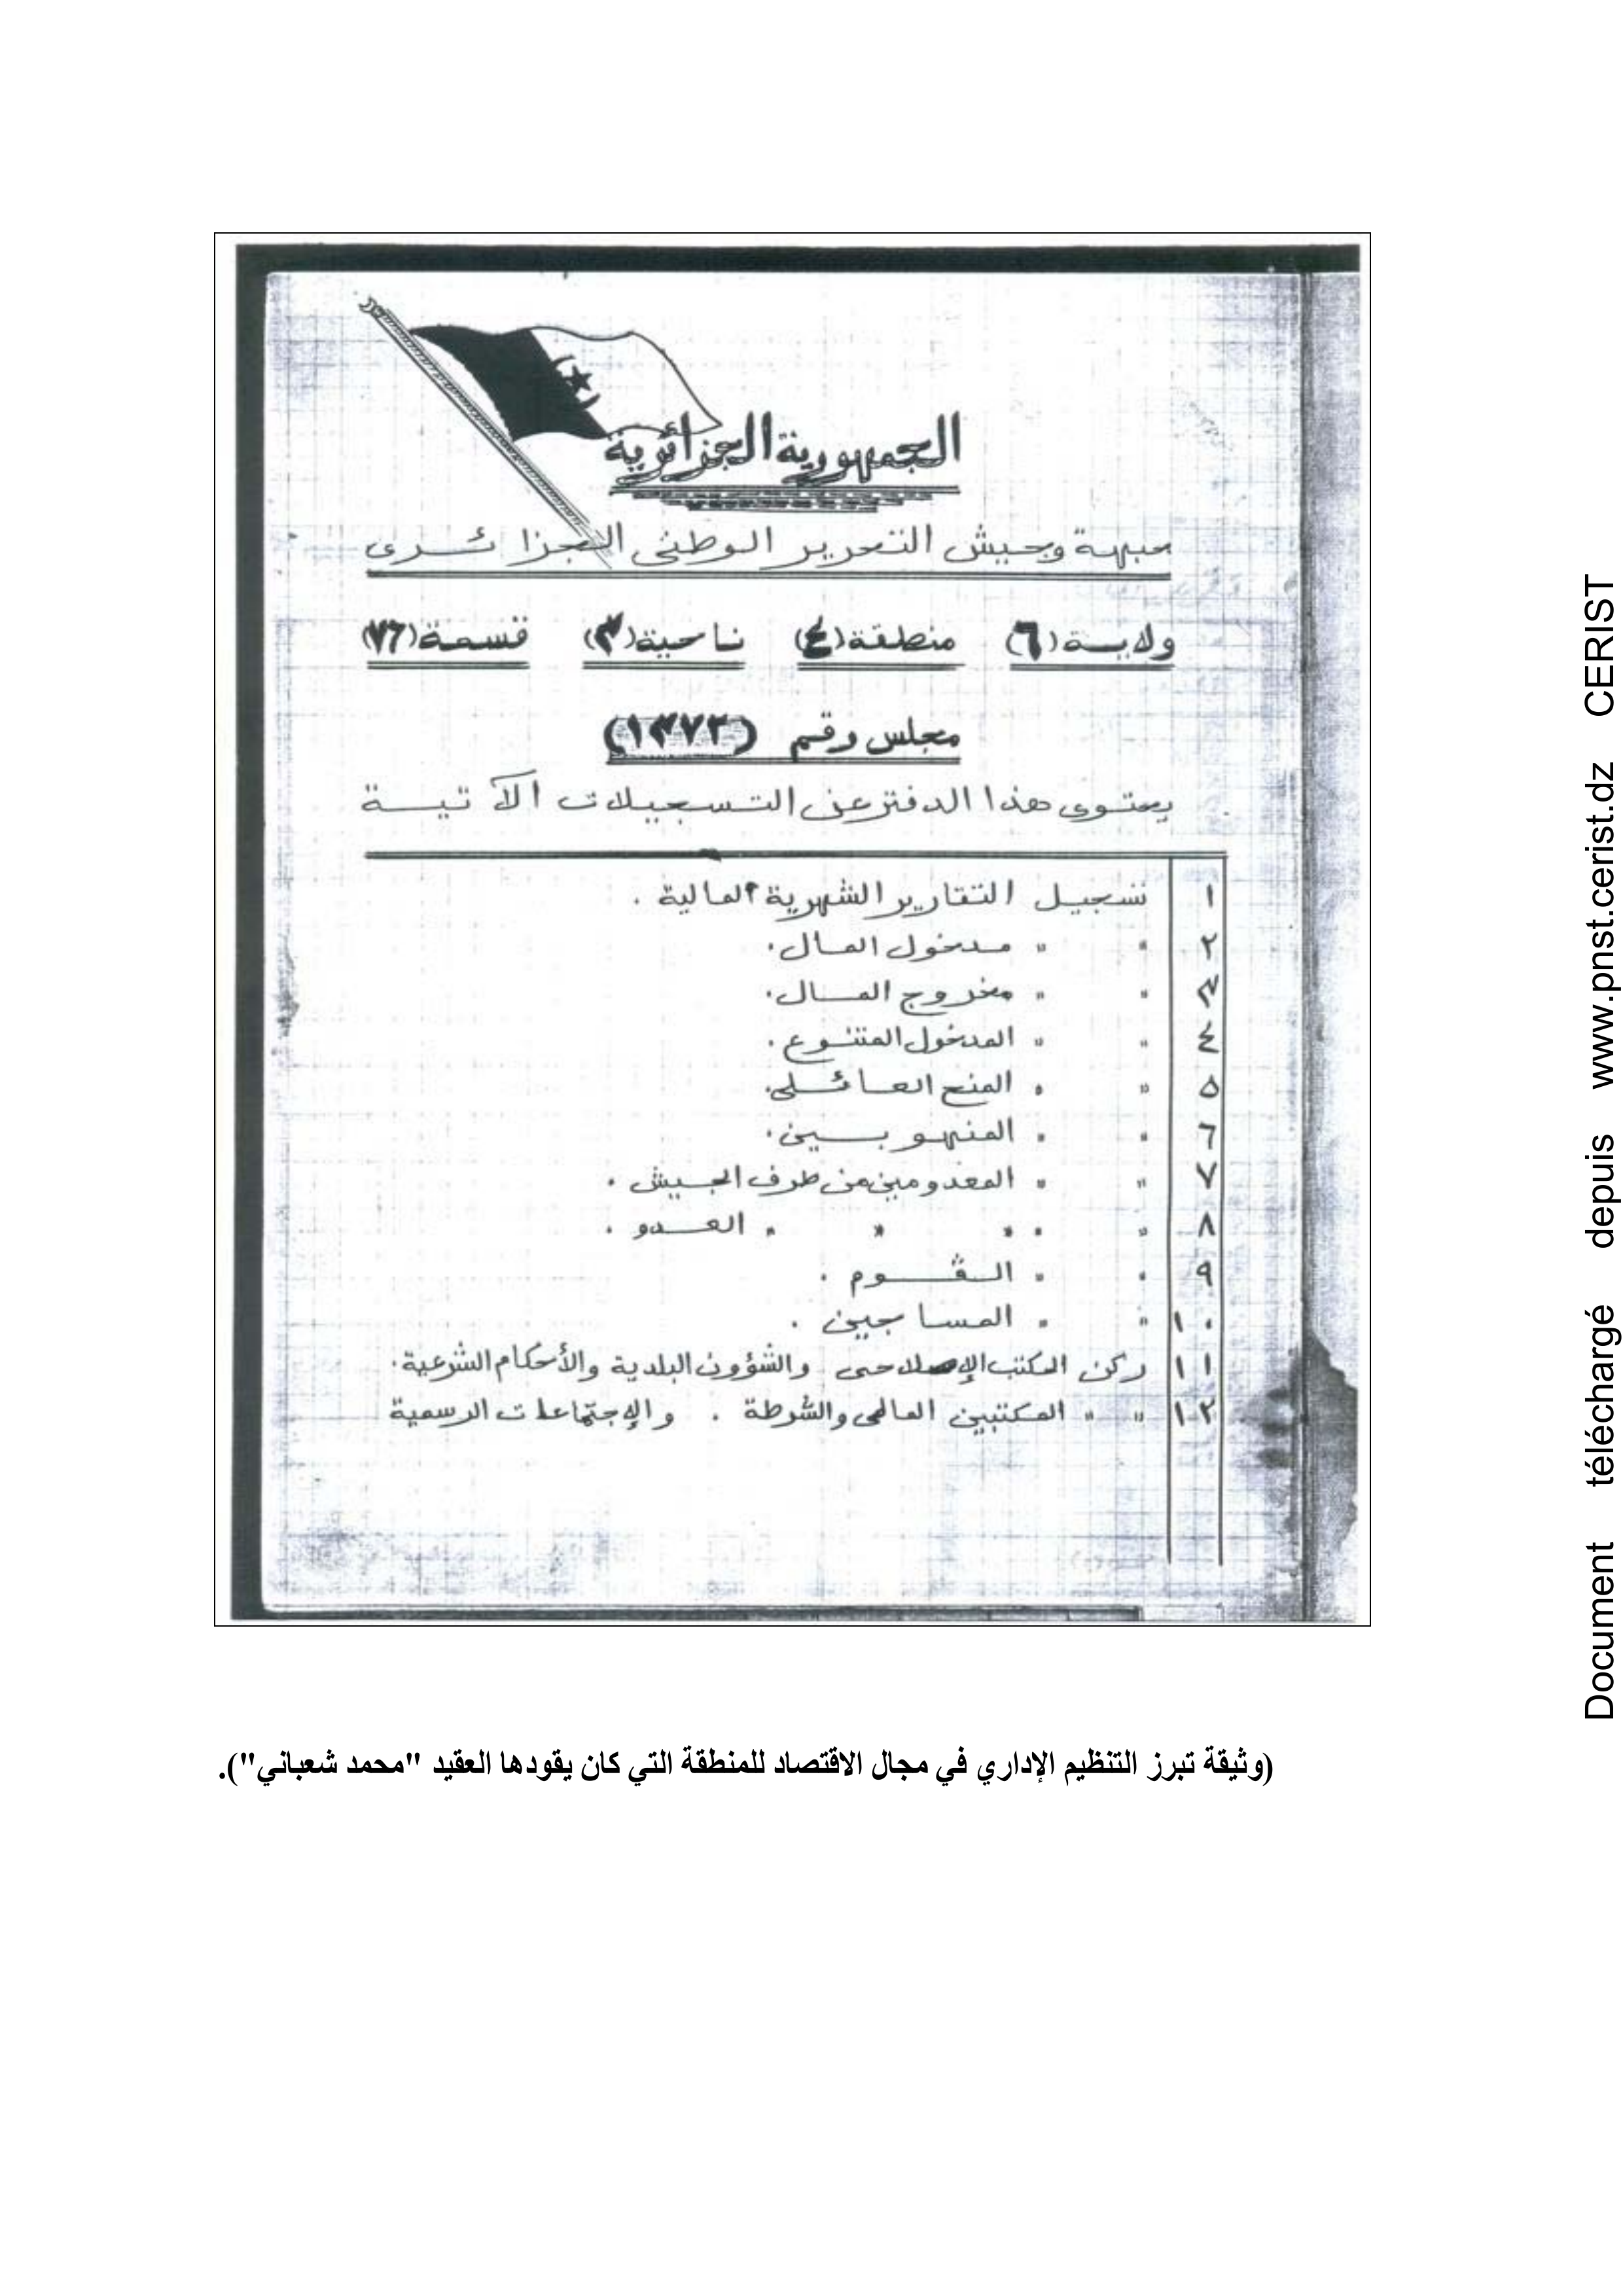 الجمهورية الجزائرية
جبهة وجيش التحرير الوطنى الجزائرى
ولاية (٦) منطقة (٤) ناحية (٣) قسمة (٧٦)
مجلس رقم (١٣٧٣)
يحتوى هذا الدفتر عن التسجيلات الآتية
١ تسجيل التقارير الشهرية المالية .
٢ " " مدخول المال.
٣ " " مخروج المال.
٤ " " المدخول المتنوع.
٥ " " المنح العائلى.
٦ " " المنهوبين.
٧ " " المعدومين من طرف الجيش .
٨ " " " " " العدو .
٩ " " القوم .
١٠ " " المساجين .
١١ ركن المكتب الإصلاحى والشؤون البلدية والأحكام الشرعية.
١٢ " " المكتبين المالى والشرطة . والإجتماعات الرسمية
(وثيقة تبرز التنظيم الإداري في مجال الاقتصاد للمنطقة التي كان يقودها العقيد "محمد شعباني").
Document téléchargé depuis www.pnst.cerist.dz CERIST